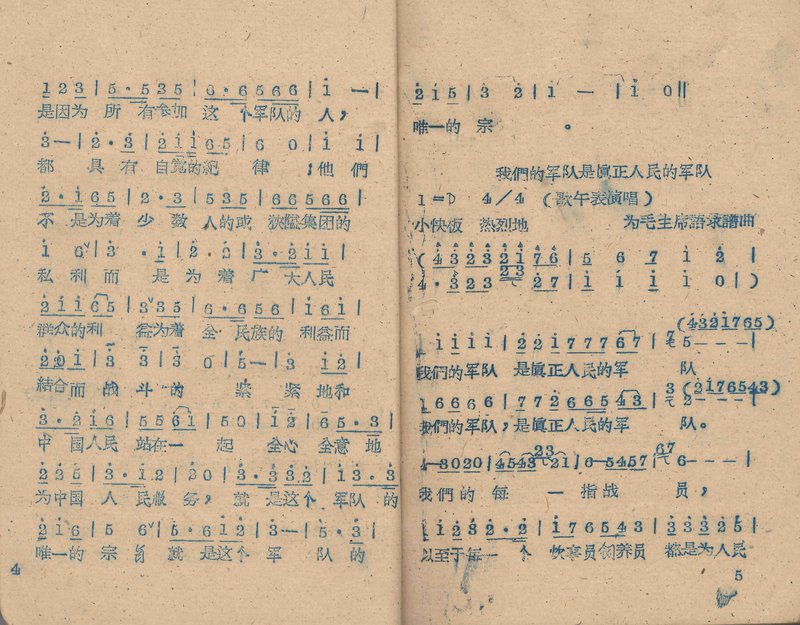 1 2 3 | 5 · 5 3 5 | 6 · 6 5 6 6 | i — |
是因为 所 有参加 这 个军队的 人，
3 — | 2 · 3 | 2 i i 6 5 | 6 0 | i i |
都 具 有 自觉的紀 律；他們
2 · i 6 5 | 2 · 3 | 5 3 5 | 6 6 5 6 6 |
不 是为着 少 数 人的或 狹隘集团的
i 6 3 · i | 2 · 2 | 3 · 2 i i |
私 利而 是 为 着 广 大人民
2 i i 6 5 | 3 3 5 | 6 · 6 5 6 | i 6 i |
群众的利 益为着 全 民族的 利益而
2 2 0 i | 3 3 | 3 0 | 5 — | 3 i 2 |
結合而 战 斗 的 紧 紧 地和
3 · 2 i 6 | 5 5 6 i | 5 0 | i 2 | 6 5 · 3 |
中 国人民 站在一 起 全心 全意 地
2 2 5 | 3 · i 2 | 2 0 | 3 · 3 3 2 | i 3 · 3 |
为中国 人 民服 务，就 是这个 军队 的
2 i 6 | 5 6 | 5 · 6 i 2 | 3 — | 5 · 3 |
唯一的 宗 旨 就 是这个 军 队 的
4
2 i 5 | 3 2 | i — | i 0 ||
唯一的 宗 。
我們的军队是眞正人民的军队
1=D 4/4 （歌午表演唱）
小快板 热烈地 为毛主席語录譜曲
( 4 3 2 3 2 i 7 6 | 5 6 7 i 2 |
4 · 3 2 3 2 3 2 7 | i i i i 0 | )
(4 3 2 i 7 6 5)
| i i i i | 2 2 i 7 7 7 6 7 | 5 - - - |
我們的军队 是眞正人民的军 队
1 6 6 6 6 | 7 7 2 6 6 5 4 3 | 2 - - - | (2 i 7 6 5 4 3)
我們的军队，是眞正人民的军 队。
4 — 3 0 2 0 | 4 5 4 3 2 3 2 1 | 6 — 5 4 5 7 | 6 7 6 - - |
我們的 每 一 指战 員，
i i 2 3 2 · 2 | i 7 6 5 4 3 | 3 3 3 2 5 |
以至于每一 个 炊事員飼养員 都是为人民
5